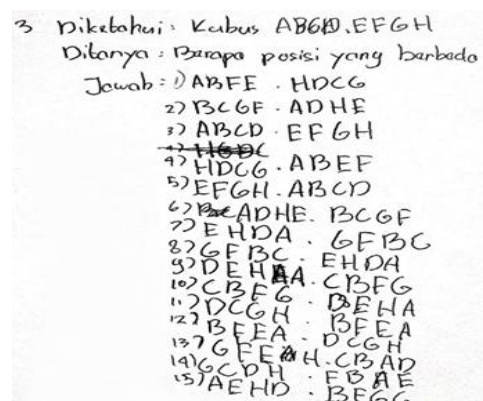 3 Diketahui : Kubus ABCD.EFGH
Ditanya : Barapa posisi yang barbeda
Jawab : 1) ABFE . HDCG
2) BCGF . ADHE
3) ABCD . EFGH
4) HDCG . ABEF
5) EFGH . ABCD
6) ADHE . BCGF
7) EHDA . GFBC
8) GFBC . EHDA
9) DEHA . CBFG
10) CBFG . BEHA
11) DCGH . BFEA
12) BFEA . DCGH
13) GFEH . CBAD
14) GCDH . FBAE
15) AEHD . BFGC